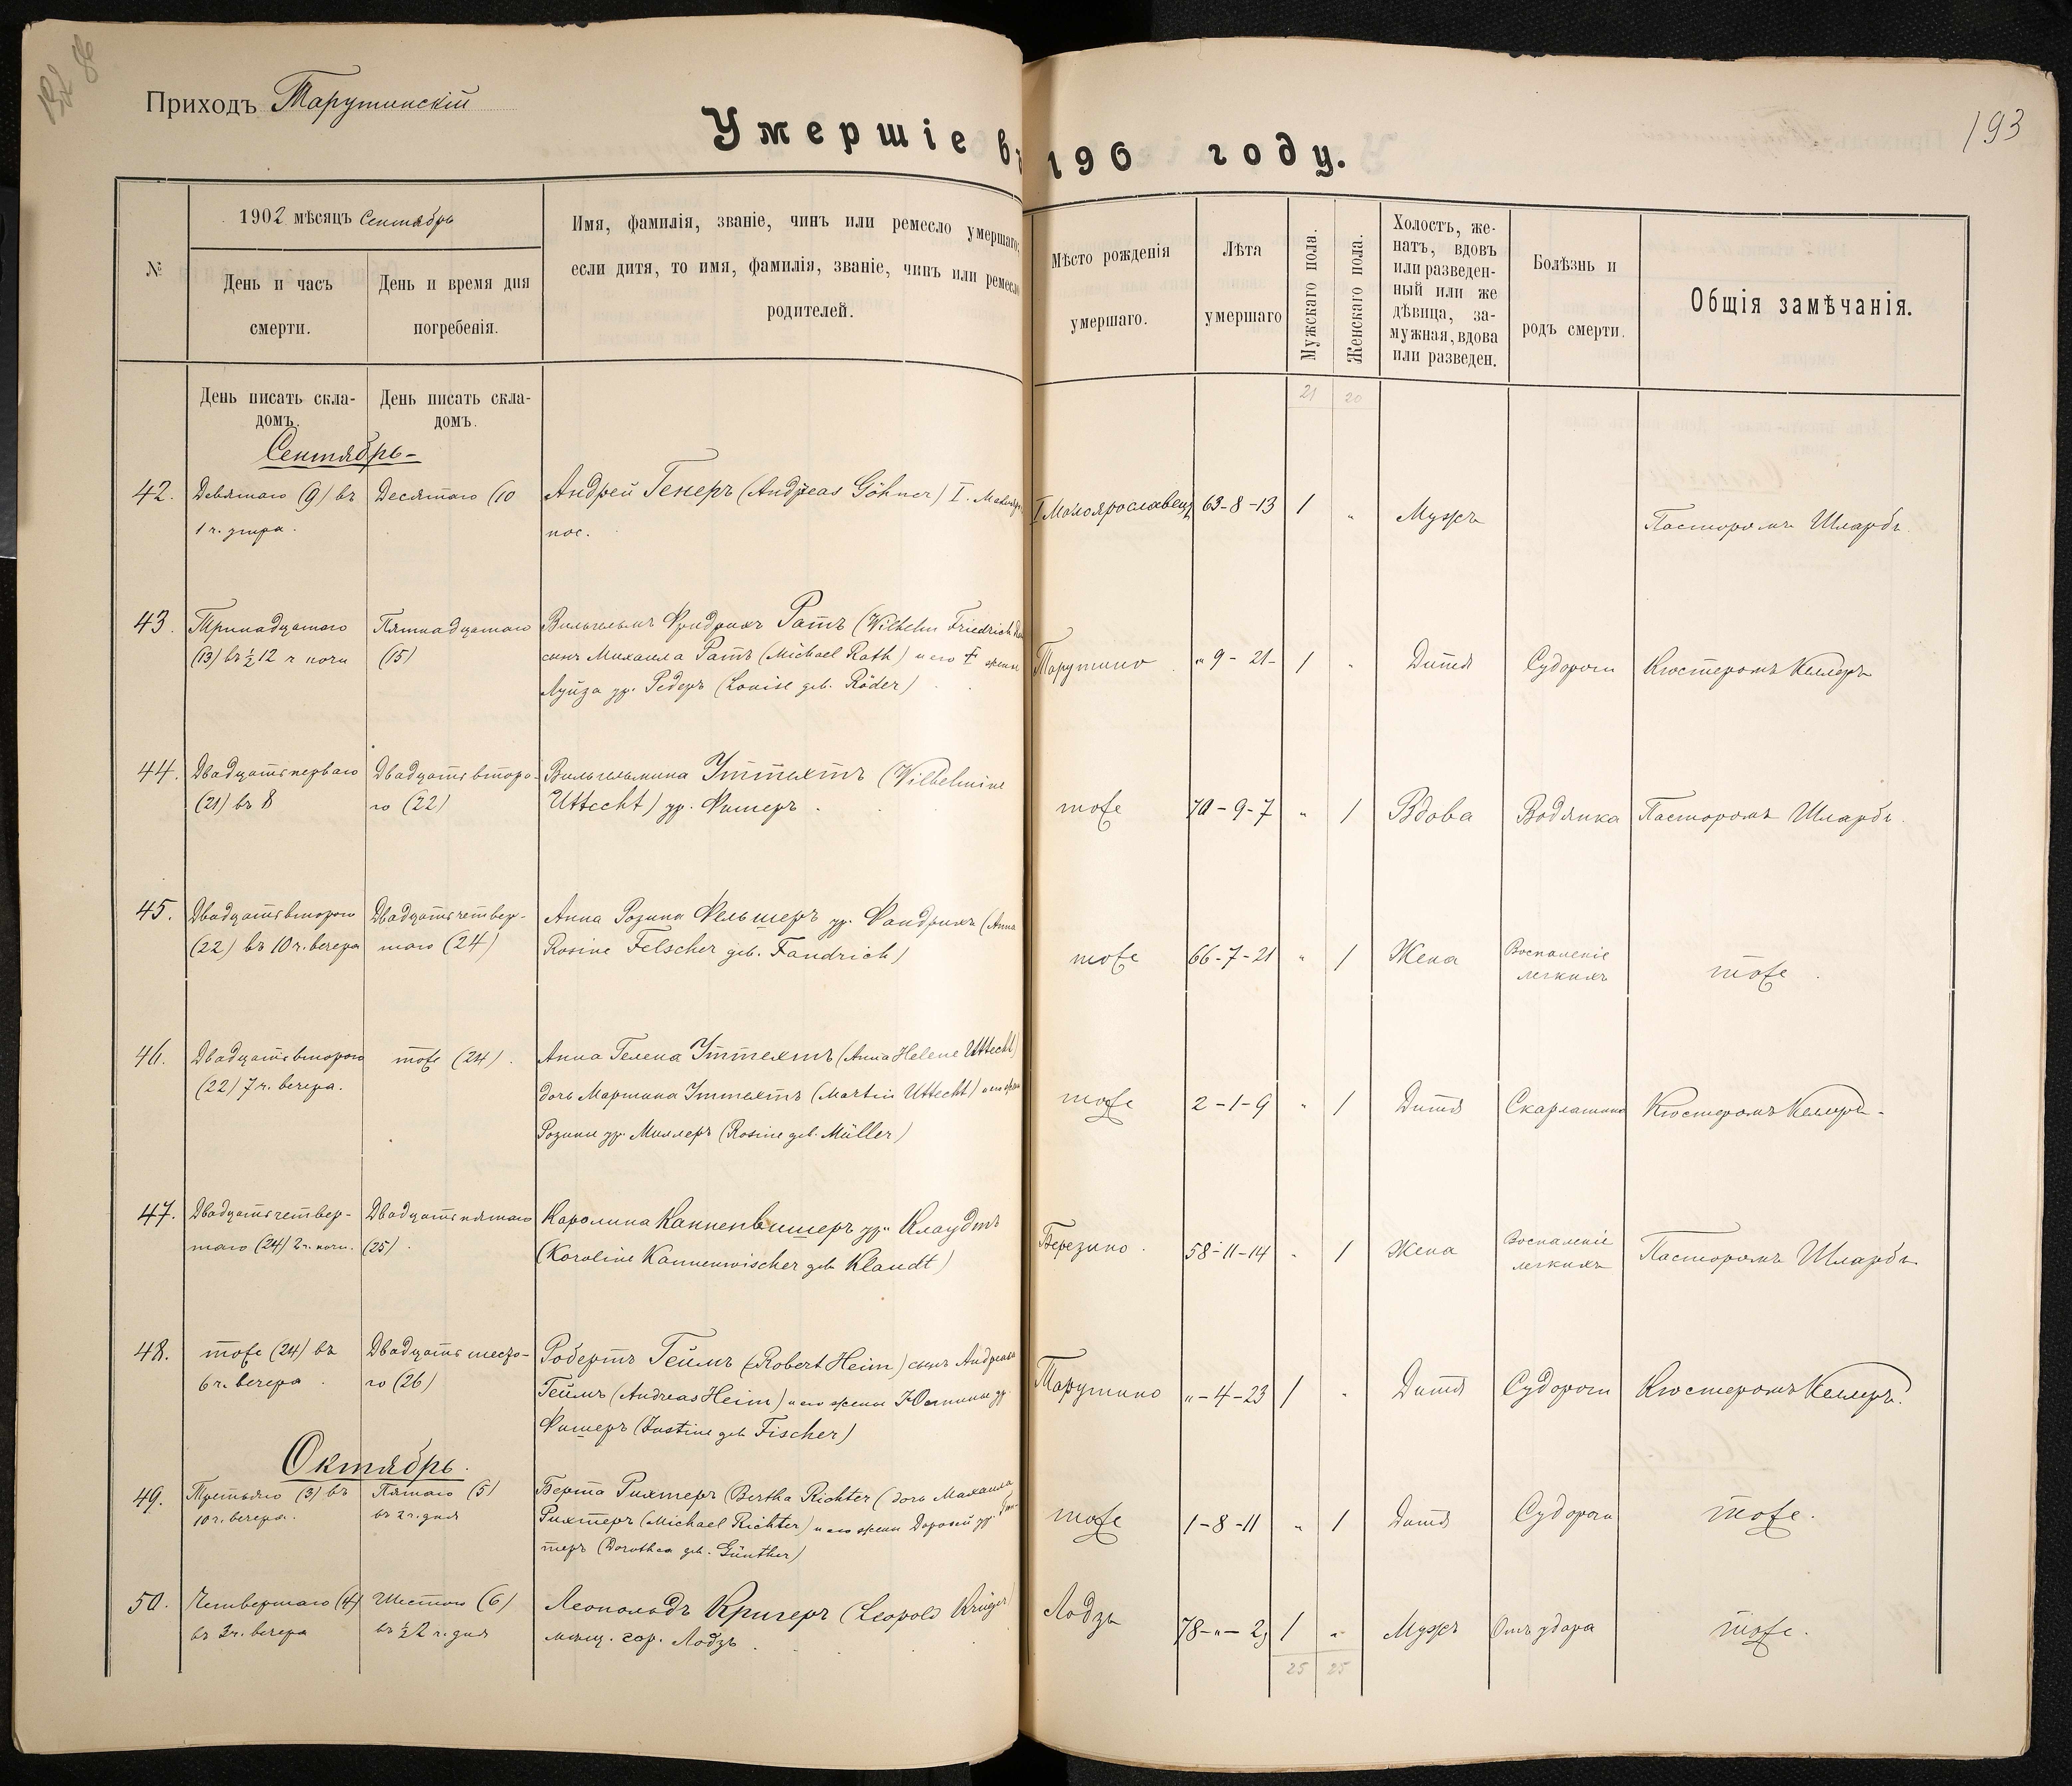 132 об
Приходъ Тарутинскій
193
Умершіе въ 190 году.
№
1902 мѣсяцъ Сентябрь
День и часъ смерти.
День и время дня погребенія.
Имя, фамилія, званіе, чинъ или ремесло умершаго;
если дитя, то имя, фамилія, званіе, чинъ или ремесло
родителей.
Мѣсто рожденія умершаго.
Лѣта умершаго
Мужскаго пола.
Женскаго пола.
Холостъ, же-
натъ, вдовъ
или разведен-
ный или же
дѣвица, за-
мужная, вдова
или разведен.
Болѣзнь и родъ смерти.
Общія замѣчанія.
День писать скла-
домъ.
День писать скла-
домъ.
21 20
Сентябрь
42. Девятаго (9) въ Десятаго (10 Андрей Генеръ (Andreas Göhner) I. Малояр.
1 ч. утра. пос.
I Малоярославецъ 63-8-13 1 „ Мужъ Пасторомъ Шлардъ.
43. Тринадцатаго Пятнадцатаго Вильгельмъ Фридрихъ Ратъ (Wilhelm Friedrich
(13) въ ½12 ч ночи (15) сынъ Михаила Ратъ (Michael Rath) и его † жены
Луиза ур. Редеръ (Louise geb. Röder)
Тарутино „ 9 - 21- 1 „ Дитя Судороги Кюстеромъ Келлеръ
44. Двадцать перваго Двадцать второ- Вильгельмина Уттехтъ (Wilhelmine
(21) въ 8 го (22) Uttecht) ур. Фишеръ.
тоже 70-9-7 „ 1 Вдова Водянка Пасторомъ Шлардъ.
45. Двадцать второго Двадцать четвер- Анна Розина Фельшеръ ур. Фандрихъ (Anna
(22) въ 10 ч. вечера таго (24) Rosine Felscher geb. Fandrich)
тоже 66-7-21 „ 1 Жена Воспаленіе
легкихъ тоже.
46. Двадцать второго тоже (24). Анна Гелена Уттехтъ (Anna Helene Uttecht)
(22) 7 ч. вечера. дочь Мартина Уттехтъ (Martin Uttecht) и его жены
Розины ур. Миллеръ (Rosine geb. Müller)
тоже 2-1-9 „ 1 Дитя Скарлатина Кюстеромъ Келлеръ-
47. Двадцать четвер- Двадцать пятаго Каролина Канненвишеръ ур. Клаудтъ
таго (24) 2 ч. ночи. (25). (Karoline Kannenwischer geb Klaudt)
Березино. 58-11-14 „ 1 Жена Воспаленіе
легкихъ Пасторомъ Шлардъ
48. тоже (24) въ Двадцать шесто- Робертъ Геймъ (Robert Heim) сынъ Андреаса
6 ч. вечера. го (26) Геймъ (Andreas Heim) и его жены Юстины ур.
Фишеръ (Justine geb Fischer)
Тарутино „-4-23 1 „ Дитя Судороги Кюстеромъ Келлеръ.
Октябрь.
49. Третьяго (3) въ Пятаго (5) Берта Рихтеръ (Bertha Richter (дочь Михаила
10 ч. вечера. въ 2 ч. дня Рихтеръ (Michael Richter) и его жены Доротеи ур. Гин-
теръ (Dorothea geb. Günther)
тоже 1-8-11 „ 1 Дитя Судороги тоже.
50. Четвертаго (4) Шестого (6) Леопольдъ Кригеръ (Leopold Krüger)
въ 3 ч. вечера въ ½2 ч. дня мѣщ. гор. Лодзь.
Лодзь 78-„- 2, 1 „ Мужъ Отъ удара тоже.
25 25